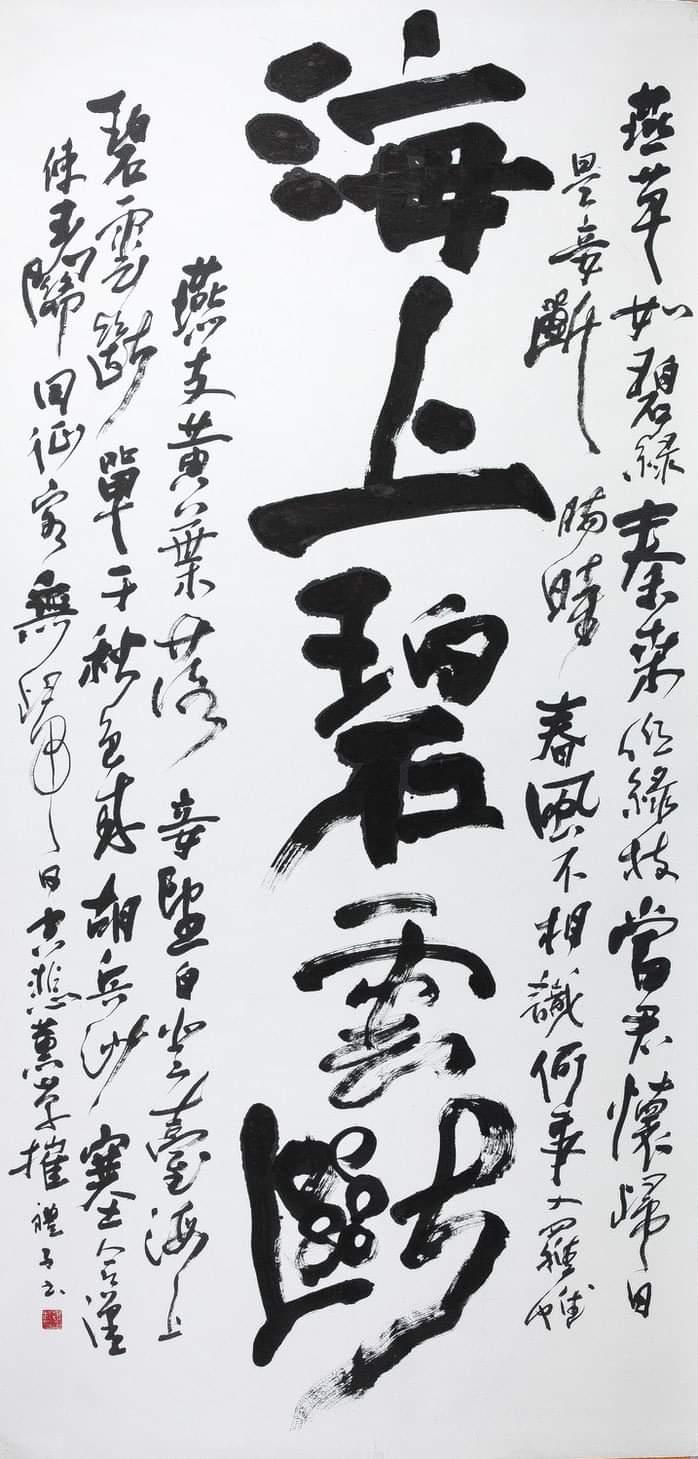 燕草如碧綠秦桑低綠枝當君懷歸日
是妾斷腸時春風不相識何事入羅幃
海上碧雲斷
燕支黃葉落妾望自登臺海上
碧雲斷單于秋色來胡兵沙塞合漢
使玉關回征客無歸日空悲蕙草摧禮子書